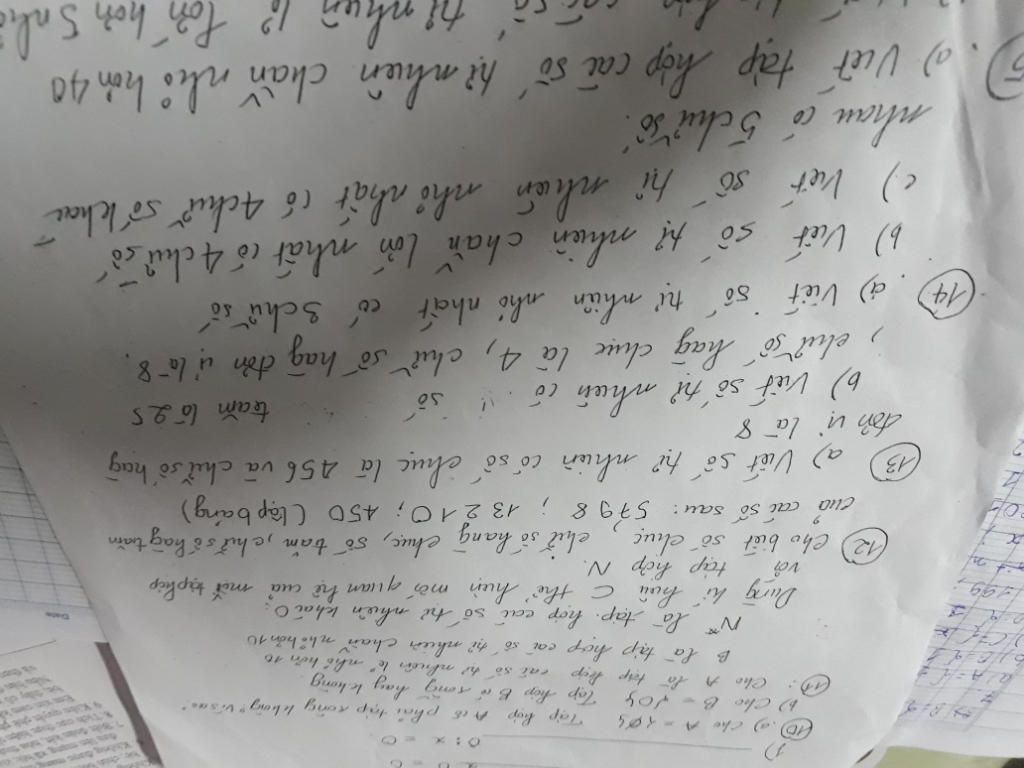 0 : x = 0
10) a) Cho A = {0} Tập hợp A có phải tập rỗng không? Vì sao?
b) Cho B = Tập hợp B có rỗng hay không.
11) Cho A là tập hợp các số tự nhiên lẻ nhỏ hơn 10
B là tập hợp các số tự nhiên chẵn nhỏ hơn 10
N* là tập hợp các số tự nhiên khác 0.
Dùng kí hiệu ⊂ thể hiện mối quan hệ của mỗi tập hợp
với tập hợp N.
12) Cho biết số chục, chữ số hàng chục, số trăm, chữ số hàng trăm
của các số sau: 5798 ; 13210 ; 450 (lập bảng)
13) a) Viết số tự nhiên có số chục là 456 và chữ số hàng
đơn vị là 8
b) Viết số tự nhiên có số trăm là 25
, chữ số hàg chục là 4, chữ số hàg đơn vị là 8.
14) a) Viết số tự nhiên nhỏ nhất có 3 chữ số
b) Viết số tự nhiên chẵn lớn nhất có 4 chữ số
c) Viết số tự nhiên nhỏ nhất có 4 chữ số khác
nhau có 5 chữ số.
15. a) Viết tập hợp các số tự nhiên chẵn nhỏ hơn 40
các số tự nhiên lẻ lớn hơn 5